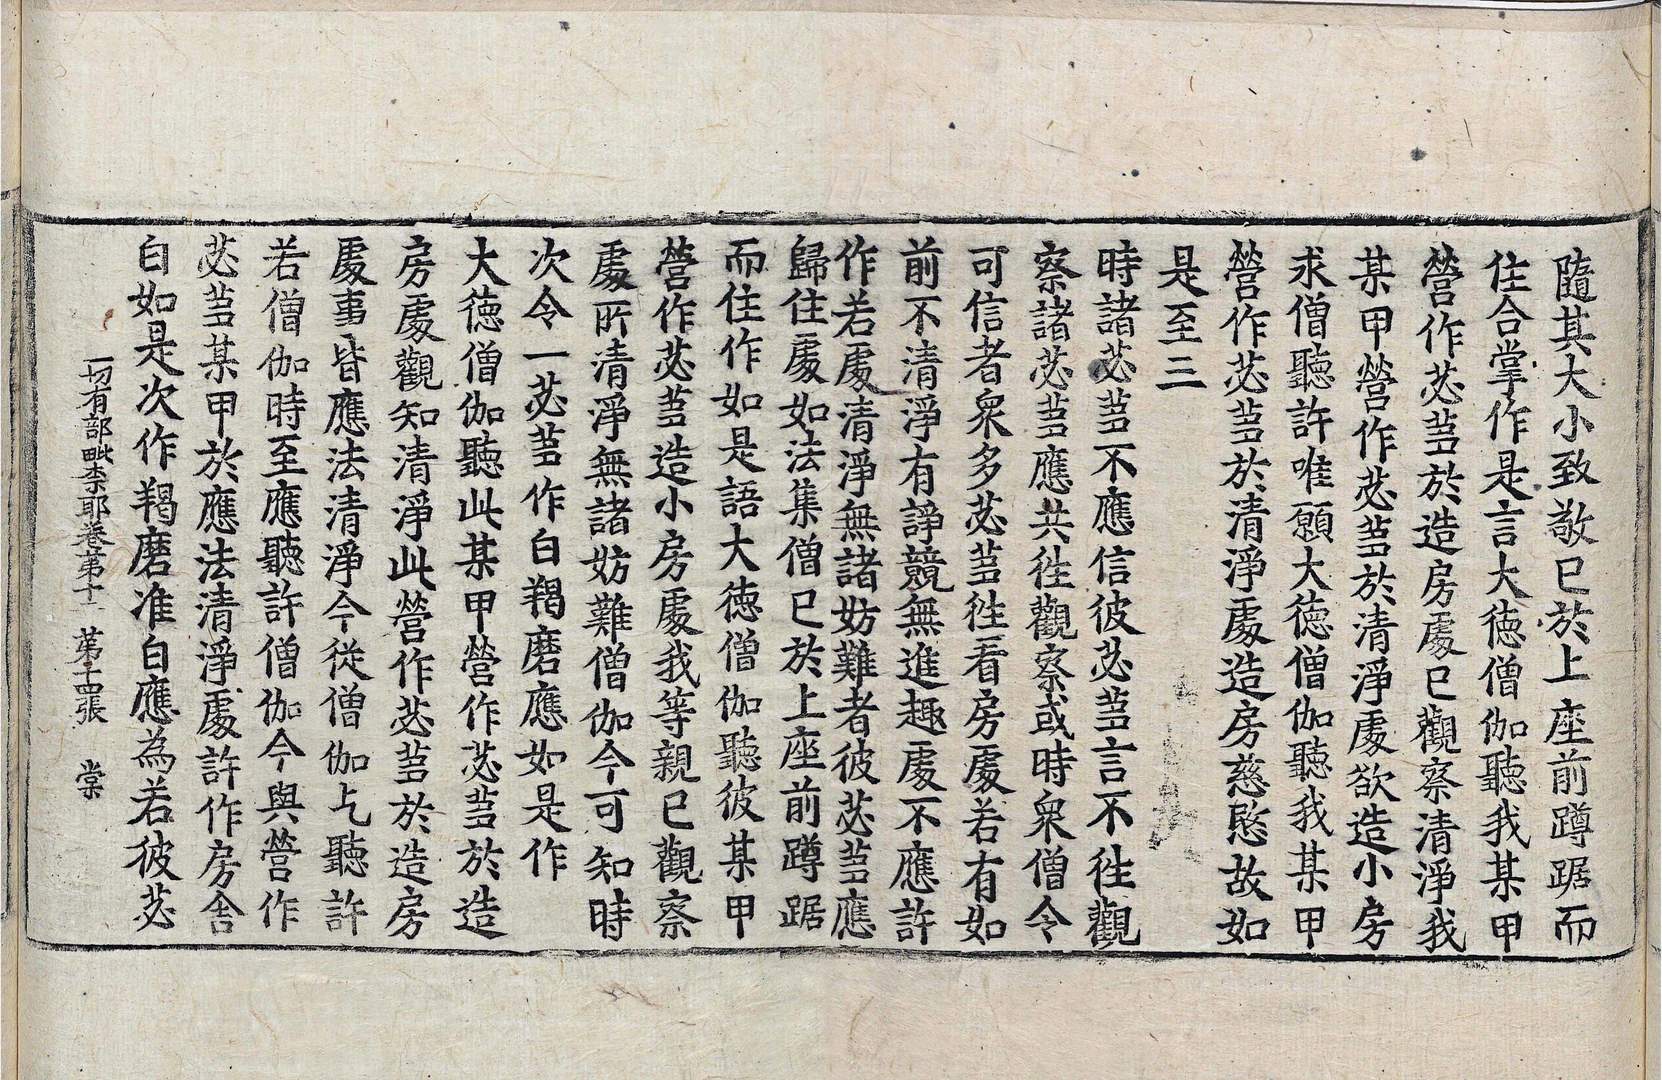 隨其大小致敬已於上座前蹲踞而
住合掌作是言大德僧伽聽我某甲
營作苾芻於造房處已觀察清淨我
某甲營作苾芻於清淨處欲造小房
求僧聽許唯願大德僧伽聽我某甲
營作苾芻於清淨處造房慈愍故如
是至三
時諸苾芻不應信彼苾芻言不徃觀
察諸苾芻應共徃觀察或時衆僧令
可信者衆多苾芻徃看房處若有如
前不清淨有諍競無進趣處不應許
作若處清淨無諸妨難者彼苾芻應
歸住處如法集僧已於上座前蹲踞
而住作如是語大德僧伽聽彼某甲
營作苾芻造小房處我等親已觀察
處所清淨無諸妨難僧伽今可知時
次令一苾芻作白羯磨應如是作
大德僧伽聽此某甲營作苾芻於造
房處觀知清淨此營作苾芻於造房
處事皆應法清淨今從僧伽乞聽許
若僧伽時至應聽許僧伽今與營作
苾芻某甲於應法清淨處許作房舍
白如是次作羯磨准白應為若彼苾
一切有部毗奈耶卷第十二　第十四張　棠